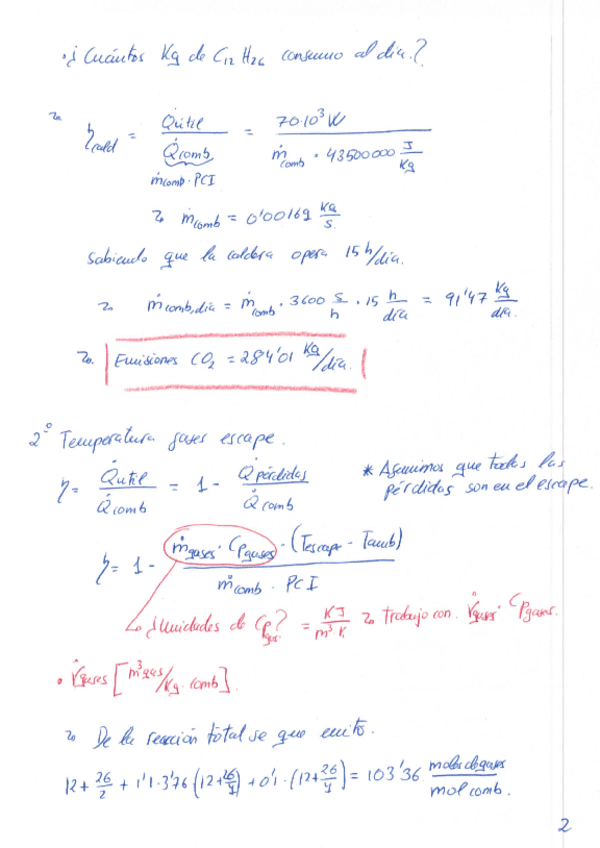 ·¿Cuántos Kg de C₁₂ H₂₆ consumo al día?
η_cald = Q̇útil / Q̇comb = 70·10³ W / ṁcomb · 43500000 J/Kg
ṁcomb · PCI
ṁcomb = 0'00169 Kg/s.
Sabiendo que la caldera opera 15 h/día.
ṁcomb,día = ṁcomb · 3600 s/h · 15 h/día = 91'47 Kg/día.
Emisiones CO₂ = 284'01 Kg/día.
2º Temperatura gases escape.
η = Q̇util / Q̇comb = 1 - Q̇pérdidas / Q̇comb
* Asumimos que todas las
pérdidas son en el escape.
η = 1 - ṁgases · CPgases · (Tescape - Tamb) / ṁcomb · PCI
¿Unidades de CPgas? = KJ/m³K trabajo con V̇gases · CPgases.
· V̇gases [m³gas/Kg comb].
De la reacción total se que emito.
12 + 26/2 + 1'1·3'76 (12+26/4) + 0'1·(12+26/4) = 103'36 moles de gases / mol comb.
2